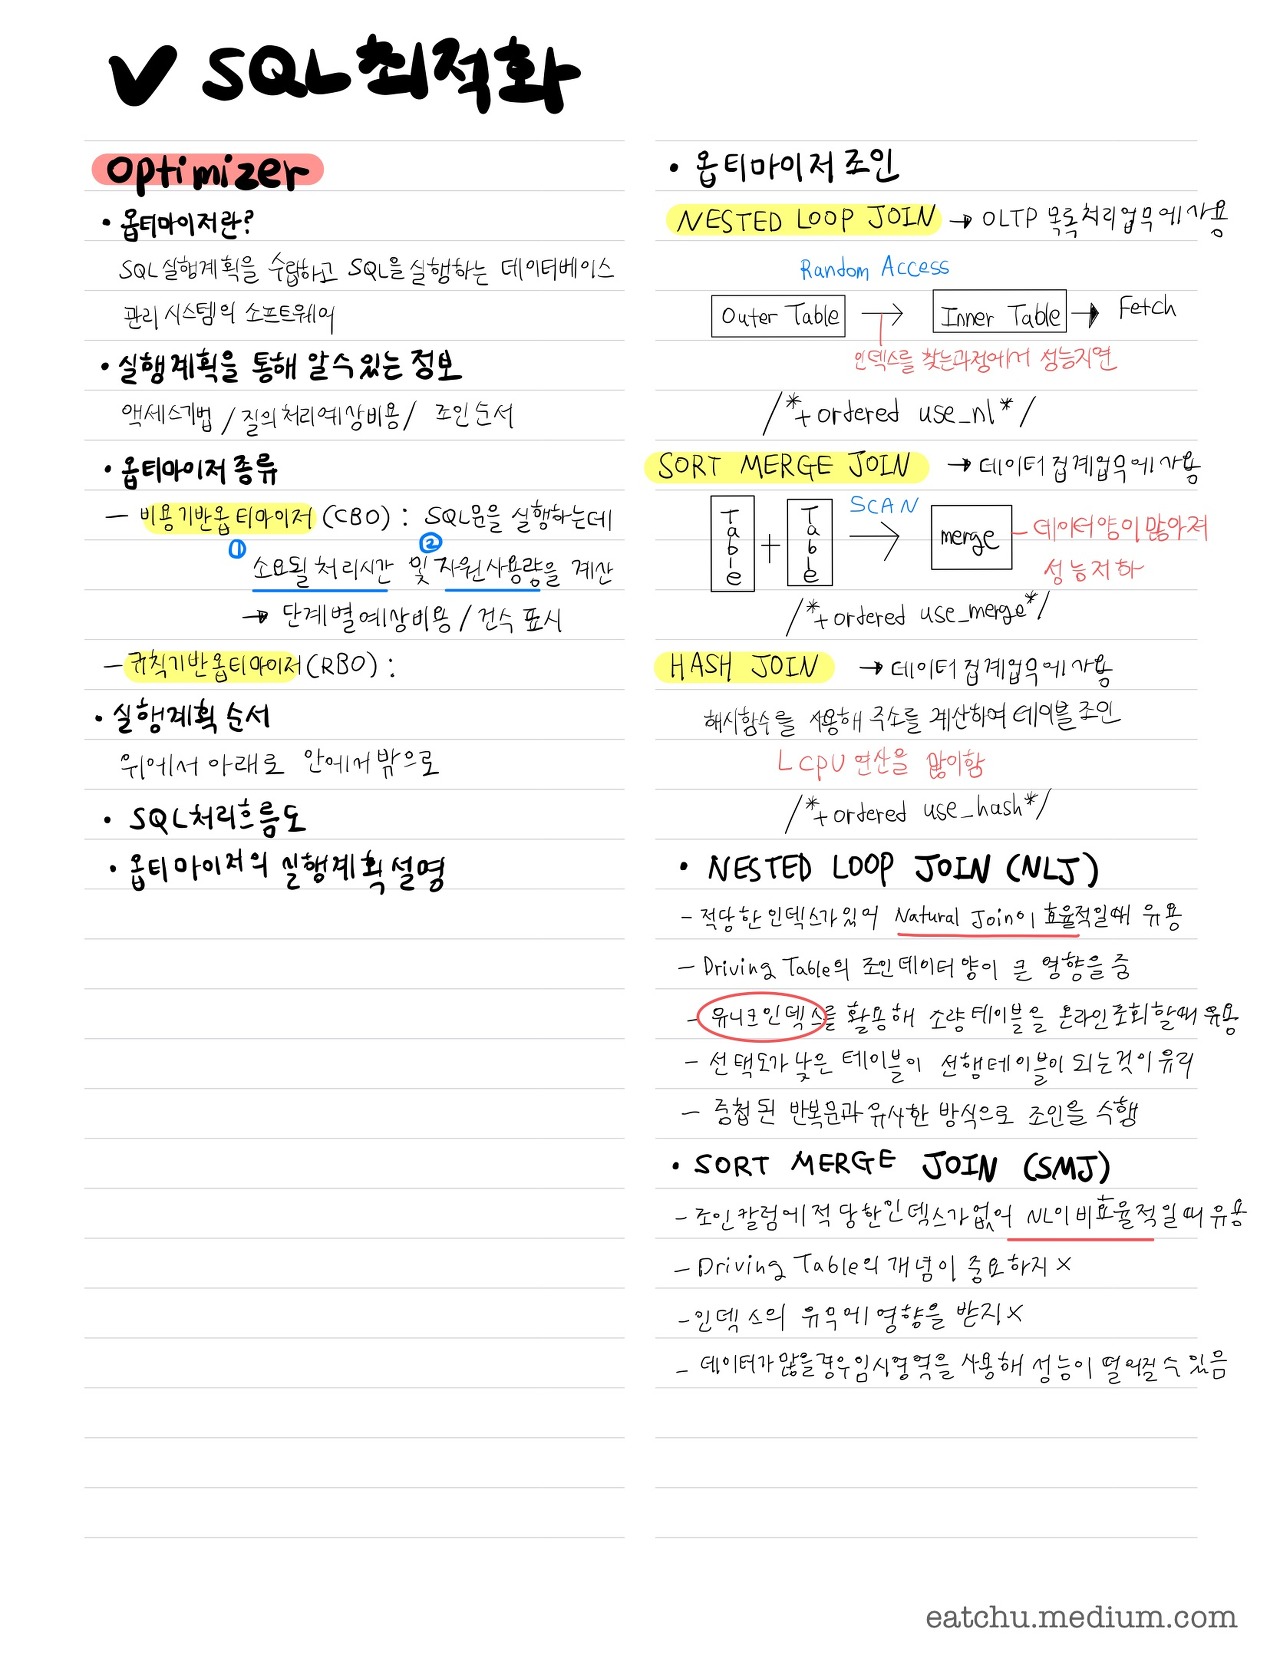 ✓ SQL 최적화
Optimizer
• 옵티마이저란?
SQL 실행계획을 수립하고 SQL을 실행하는 데이터베이스
관리 시스템의 소프트웨어
• 실행계획을 통해 알수있는 정보
액세스기법 / 질의처리예상비용 / 조인순서
• 옵티마이저 종류
- 비용기반옵티마이저 (CBO) : SQL문을 실행하는데
① ②
소요될 처리시간 및 자원사용량을 계산
→ 단계별예상비용 / 건수 표시
- 규칙기반옵티마이저(RBO) :
• 실행계획 순서
위에서 아래로 안에서 밖으로
• SQL처리흐름도
• 옵티마이저의 실행계획 설명
• 옵티마이저 조인
NESTED LOOP JOIN → OLTP 목록처리업무에사용
Random Access
Outer Table → Inner Table → Fetch
인덱스를 찾는과정에서 성능지연
/*+ ordered use_nl*/
SORT MERGE JOIN → 데이터 집계업무에사용
Table + Table SCAN → merge - 데이터양이 많아져
성능저하
/*+ ordered use_merge*/
HASH JOIN → 데이터 집계업무에사용
해시함수를 사용해 주소를 계산하여 테이블 조인
ㄴ CPU 연산을 많이함
/*+ ordered use_hash*/
• NESTED LOOP JOIN (NLJ)
- 적당한 인덱스가있어 Natural Join이 효율적일때 유용
- Driving Table의 조인데이터 양이 큰 영향을 줌
- 유니크인덱스를 활용해 소량테이블을 온라인조회할때 유용
- 선택도가 낮은 테이블이 선행테이블이 되는것이 유리
- 중첩된 반복문과 유사한 방식으로 조인을 수행
• SORT MERGE JOIN (SMJ)
- 조인칼럼에 적당한인덱스가없어 NL이 비효율적일때 유용
- Driving Table의 개념이 중요하지 X
- 인덱스의 유무에 영향을 받지 X
- 데이터가 많을경우 임시영역을 사용해 성능이 떨어질수 있음
eatchu.medium.com